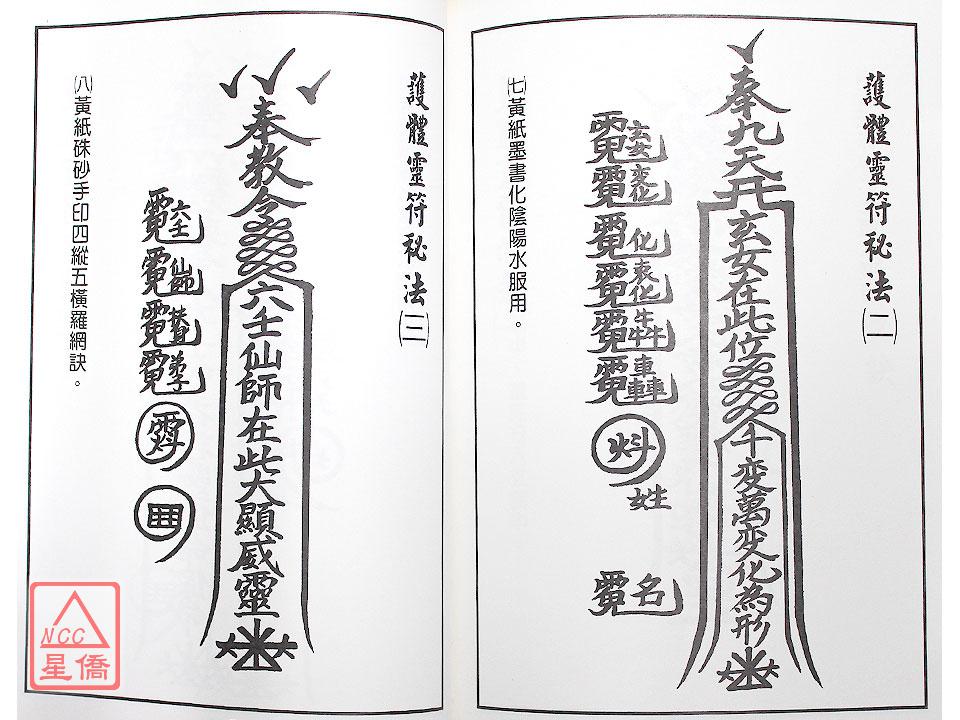 護體靈符秘法(二)
奉九天
玄女在此位
千变萬变化為形
玄女
变化
化
姓
名
(七)黃紙墨書化陰陽水服用。
護體靈符秘法(三)
奉教令
六壬仙師在此大顯威靈
六壬
仙師
(八)黃紙硃砂手印四縱五橫羅網訣。
NCC
星僑